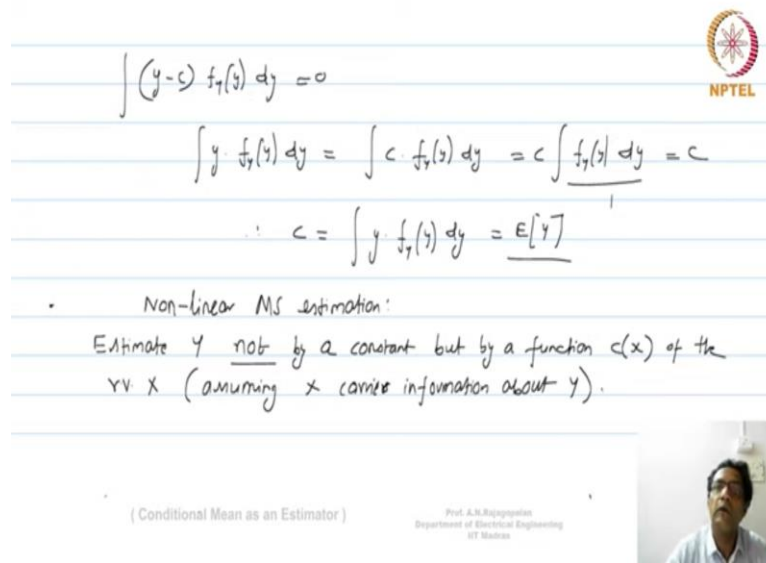 NPTEL
∫ (y-c) f_Y(y) dy = 0
∫ y. f_Y(y) dy = ∫ c. f_Y(y) dy = c ∫ f_Y(y) dy = c
1
∴ c = ∫ y. f_Y(y) dy = E[Y]
Non-linear MS estimation:
Estimate Y not by a constant but by a function c(x) of the
rv. X (assuming X carries information about Y).
( Conditional Mean as an Estimator )
Prof. A.N.Rajagopalan
Department of Electrical Engineering
IIT Madras